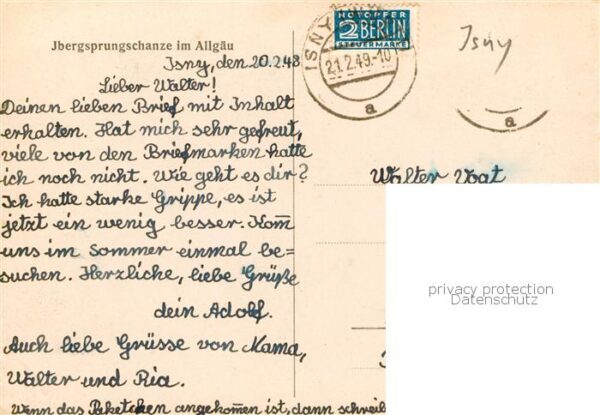 Jbergsprungschanze im Allgäu
NOTOPFER
2 BERLIN
STEUERMARKE
ISNY
21.2.49.-10
a
Isny
a
Isny, den 20.2.48
Lieber Walter!
Deinen lieben Brief mit Inhalt
erhalten. Hat mich sehr gefreut,
viele von den Briefmarken hatte
ich noch nicht. Wie geht es dir?
Ich hatte starke Grippe, es ist
jetzt ein wenig besser. Kom̄
uns im Sommer einmal be=
suchen. Herzliche, liebe Grüße
dein Adolf.
Auch liebe Grüsse von Mama,
Walter und Ria.
Wenn das Paketchen angekommen ist, dann schreib
Walter Vogt
privacy protection
Datenschutz